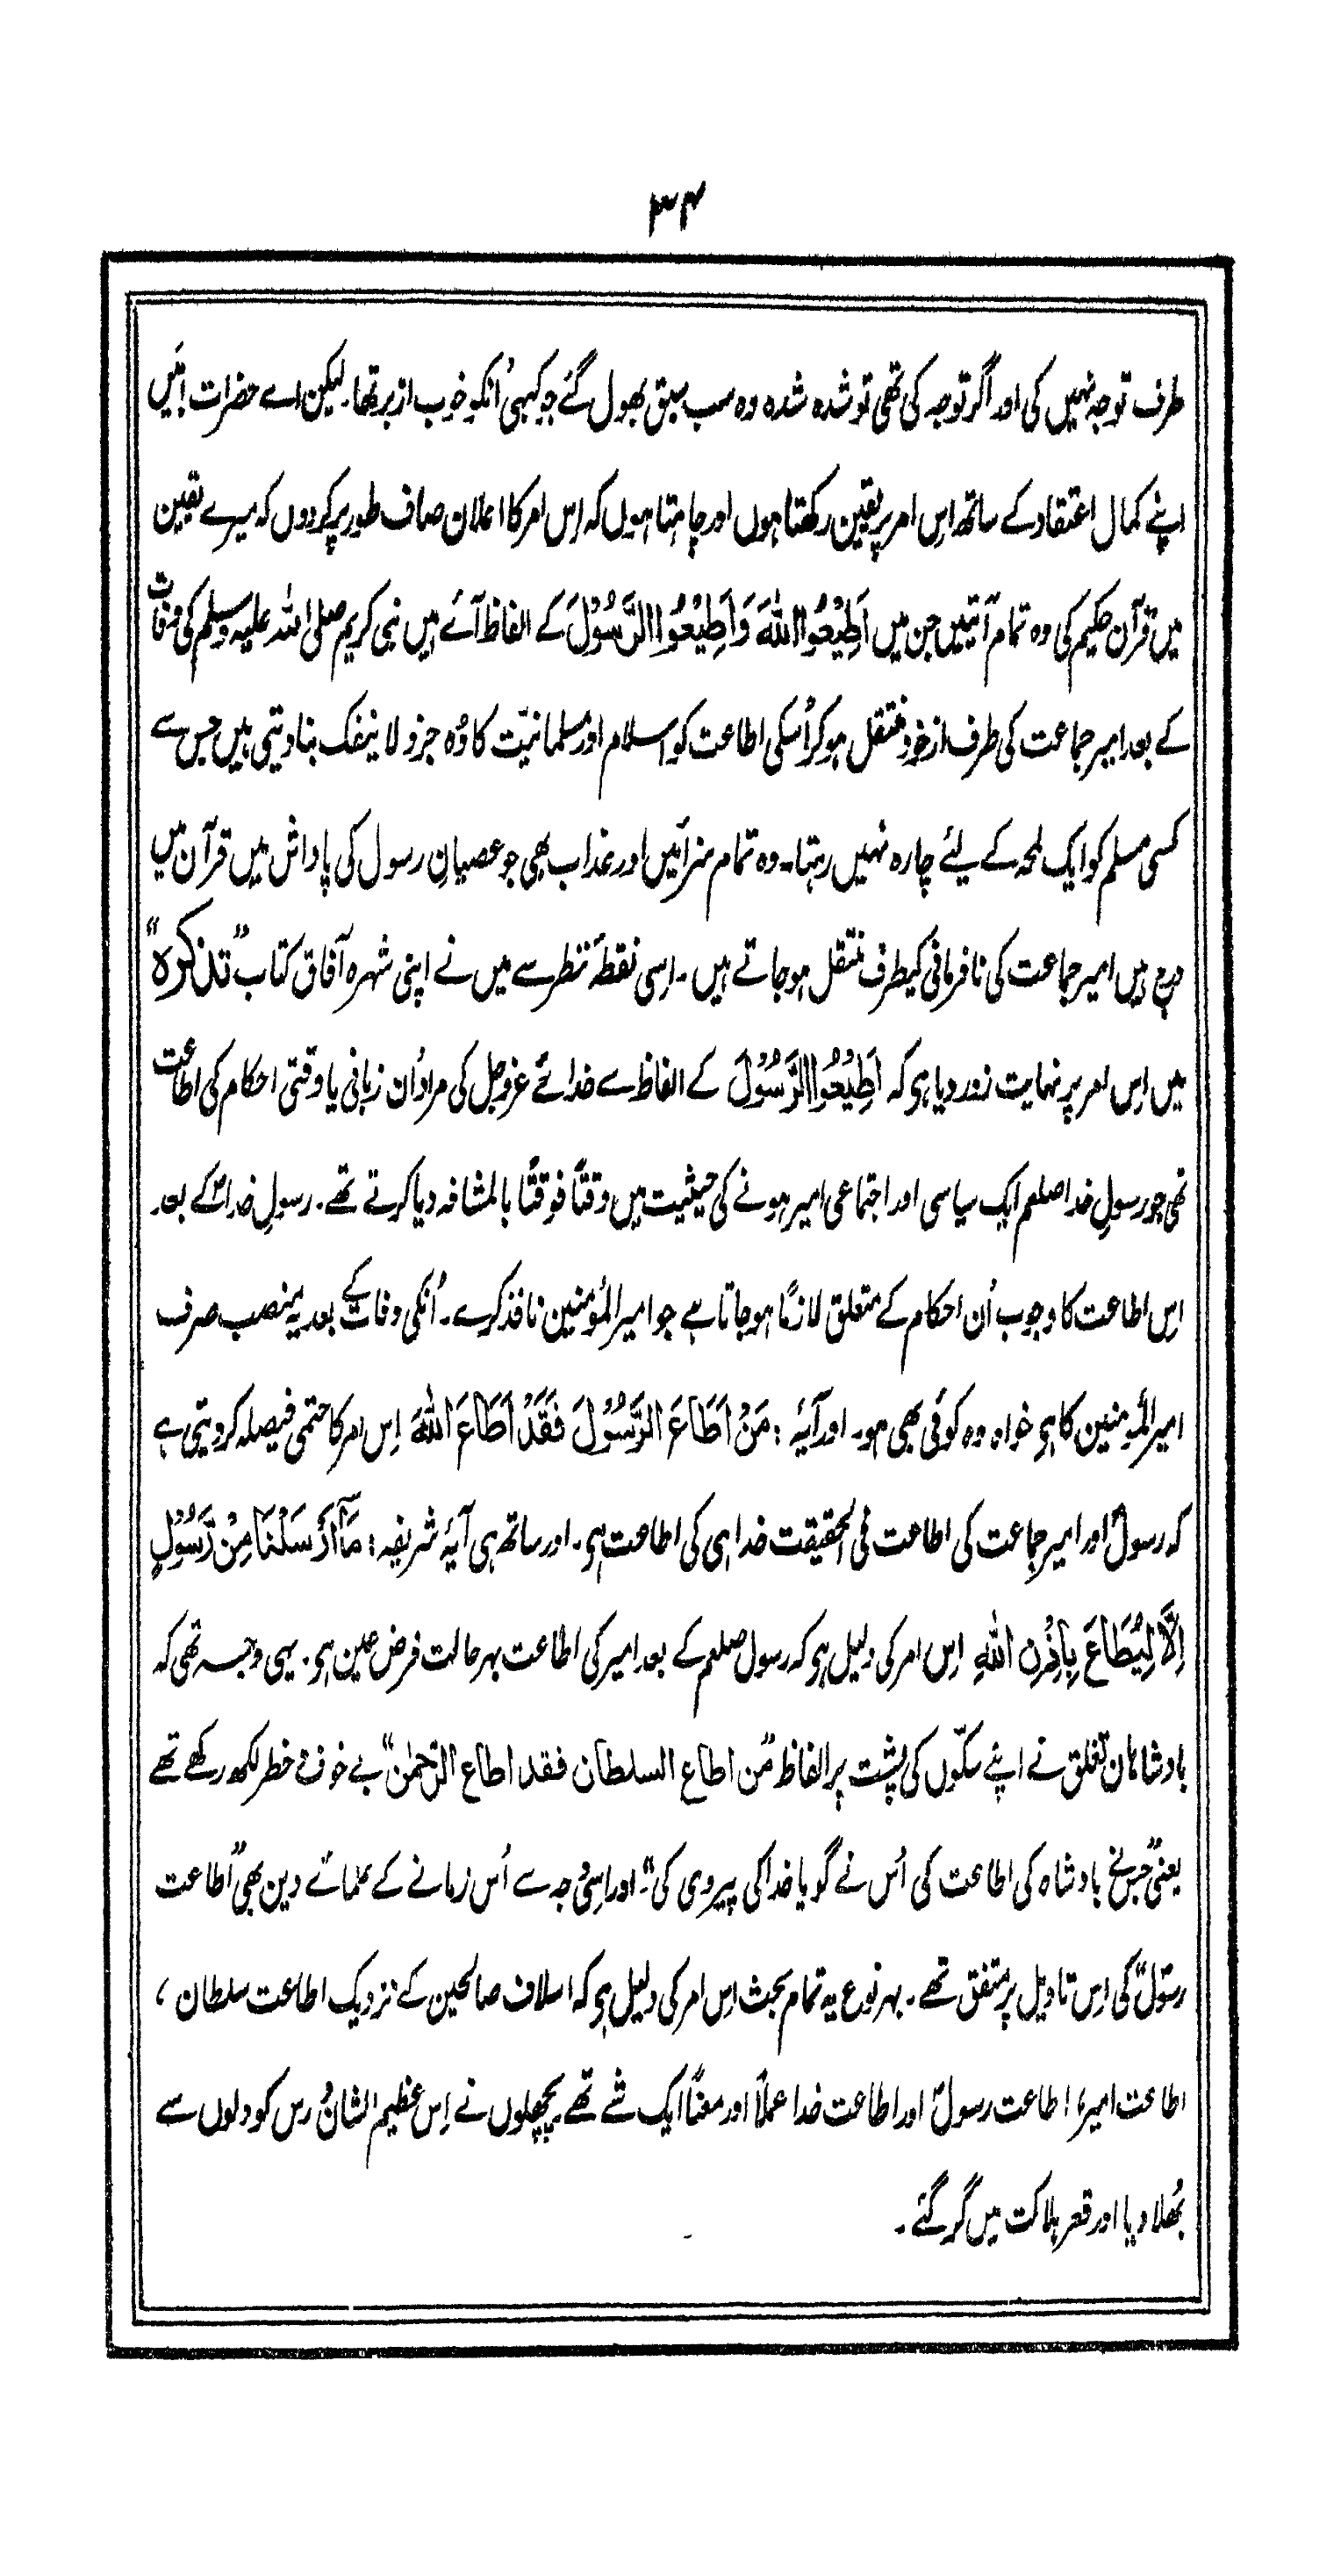 ۳۴
طرف توجہ نہیں کی اور اگر توجہ کی تھی تو شدہ شدہ وہ سب سبق بھول گئے جو کبھی اُنکو خوب ازبر تھا۔ لیکن اے حضرات! میں
اپنے کمال اعتقاد کے ساتھ اِس امر پر یقین رکھتا ہوں اور چاہتا ہوں کہ اِس امر کا اعلان صاف طور پر کردوں کہ میرے یقین
میں قرآن حکیم کی وہ تمام آیتیں جن میں اَطِیْعُوا اللہَ وَاَطِیْعُوا الرَّسُوْلَ کے الفاظ آئے ہیں نبی کریم صلی اللہ علیہ وسلم کی وفات
کے بعد امیر جماعت کی طرف ازخود منتقل ہوکر اُسکی اطاعت کو اسلام اور مسلمانیّت کا وُہ جزو لا ینفک بنادیتی ہیں جس سے
کسی مسلم کو ایک لمحہ کے لیئے چارہ نہیں رہتا۔ وہ تمام سزائیں اور عذاب بھی جو عصیانِ رسول کی پاداش میں قرآن میں
درج ہیں امیر جماعت کی نافرمانی کیطرف منتقل ہوجاتے ہیں۔ اِسی نقطۂ نظر سے میں نے اپنی شہرہ آفاق کتاب "تذکرہ"
میں اِس امر پر نہایت زور دیا ہو کہ اَطِیْعُوا الرَّسُوْلَ کے الفاظ سے خدائے عزوجل کی مراد اُن زبانی یا وقتی احکام کی اطاعت
تھی جو رسولِ خدا صلعم ایک سیاسی اور اجتماعی امیر ہونے کی حیثیت میں وقتاً فوقتاً بالمشافہ دیا کرتے تھے۔ رسولِ خداؐ کے بعد
اِس اطاعت کا وجوب اُن احکام کے متعلق لازماً ہوجاتا ہے جو امیر المؤمنین نافذ کرے۔ اُنکی وفات کے بعد یہ منصب صرف
امیر المؤمنین کا ہو خواہ وہ کوئی بھی ہو۔ اور آیۂ : مَنْ اَطَاعَ الرَّسُوْلَ فَقَدْ اَطَاعَ اللہَ اِس امر کا حتمی فیصلہ کردیتی ہے
کہ رسولؐ اور امیرِ جماعت کی اطاعت فی الحقیقت خدا ہی کی اطاعت ہو۔ اور ساتھ ہی آیۂ شریفہ : مَآ اَرْسَلْنَا مِنْ رَّسُوْلٍ
اِلَّا لِیُطَاعَ بِاِذْنِ اللہِ اِس امر کی دلیل ہو کہ رسول صلعم کے بعد امیر کی اطاعت بہرحالت فرض عین ہو۔ یہی وجہ تھی کہ
بادشاہان تغلق نے اپنے سکّوں کی پشت پر الفاظ "من اطاع السلطان فقد اطاع الرّحمٰن" بے خوف خطر لکھ رکھے تھے
یعنی "جس نے بادشاہ کی اطاعت کی اُس نے گویا خدا کی پیروی کی"۔ اور اِسی وجہ سے اُس زمانے کے علمائے دین بھی "اطاعت
رسولؐ" کی اِس تاویل پر متفق تھے۔ بہرنوع یہ تمام بحث اِس امر کی دلیل ہو کہ اسلاف صالحین کے نزدیک اطاعت سلطان ،
اطاعت امیر، اطاعت رسولؐ اور اطاعت خدا عملاً اور معناً ایک شے تھے پچھلوں نے اِس عظیم الشان درس کو دلوں سے
بُھلا دیا اور قعر ہلاکت میں گر گئے۔